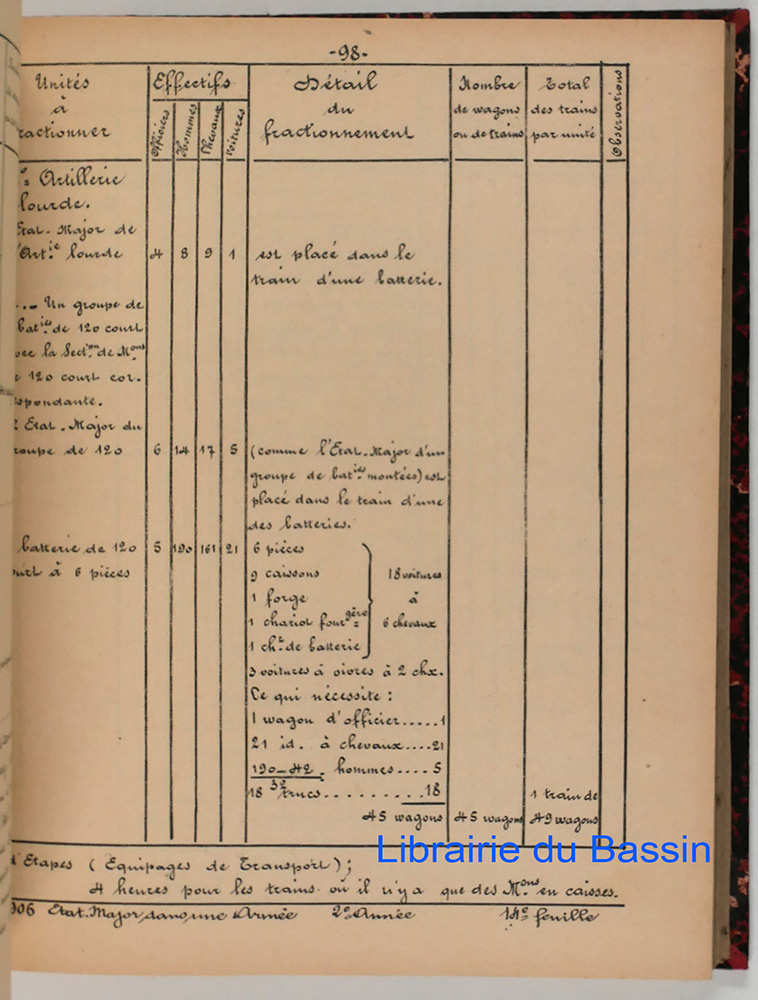 -98-
Unités
à
ractionner
Effectifs
Officiers
Hommes
Chevaux
Voitures
Détail
du
fractionnement
Nombre
de wagons
ou de trains
Total
des trains
par unité
Observations
Artillerie
lourde.
Etat-Major de
Art.ie lourde 4 8 9 1 est placé dans le
train d'une batterie.
Un groupe de
bat.ies de 120 court
vec la Sect.on de M.ons
e 120 court cor-
spondante.
Etat-Major du
roupe de 120 6 14 17 5 (comme l'Etat-Major d'un
groupe de bat.ies montées) est
placé dans le train d'une
des batteries.
batterie de 120 5 190 161 21 6 pièces
urt à 6 pièces 9 caissons 18 voitures
1 forge à
1 chariot four.gère 6 chevaux
1 ch.t de batterie
3 voitures à vivres à 2 chx.
Ce qui nécessite :
1 wagon d'officier.....1
21 id. à chevaux....21
190-42 hommes....5
32
18 trucs.........18 1 train de
45 wagons 45 wagons 49 wagons
d'Etapes (Equipages de Transport);
4 heures pour les trains où il n'y a que des M.ons en caisses.
906 Etat-Major dans une Armée 2e Année 14e feuille
Librairie du Bassin